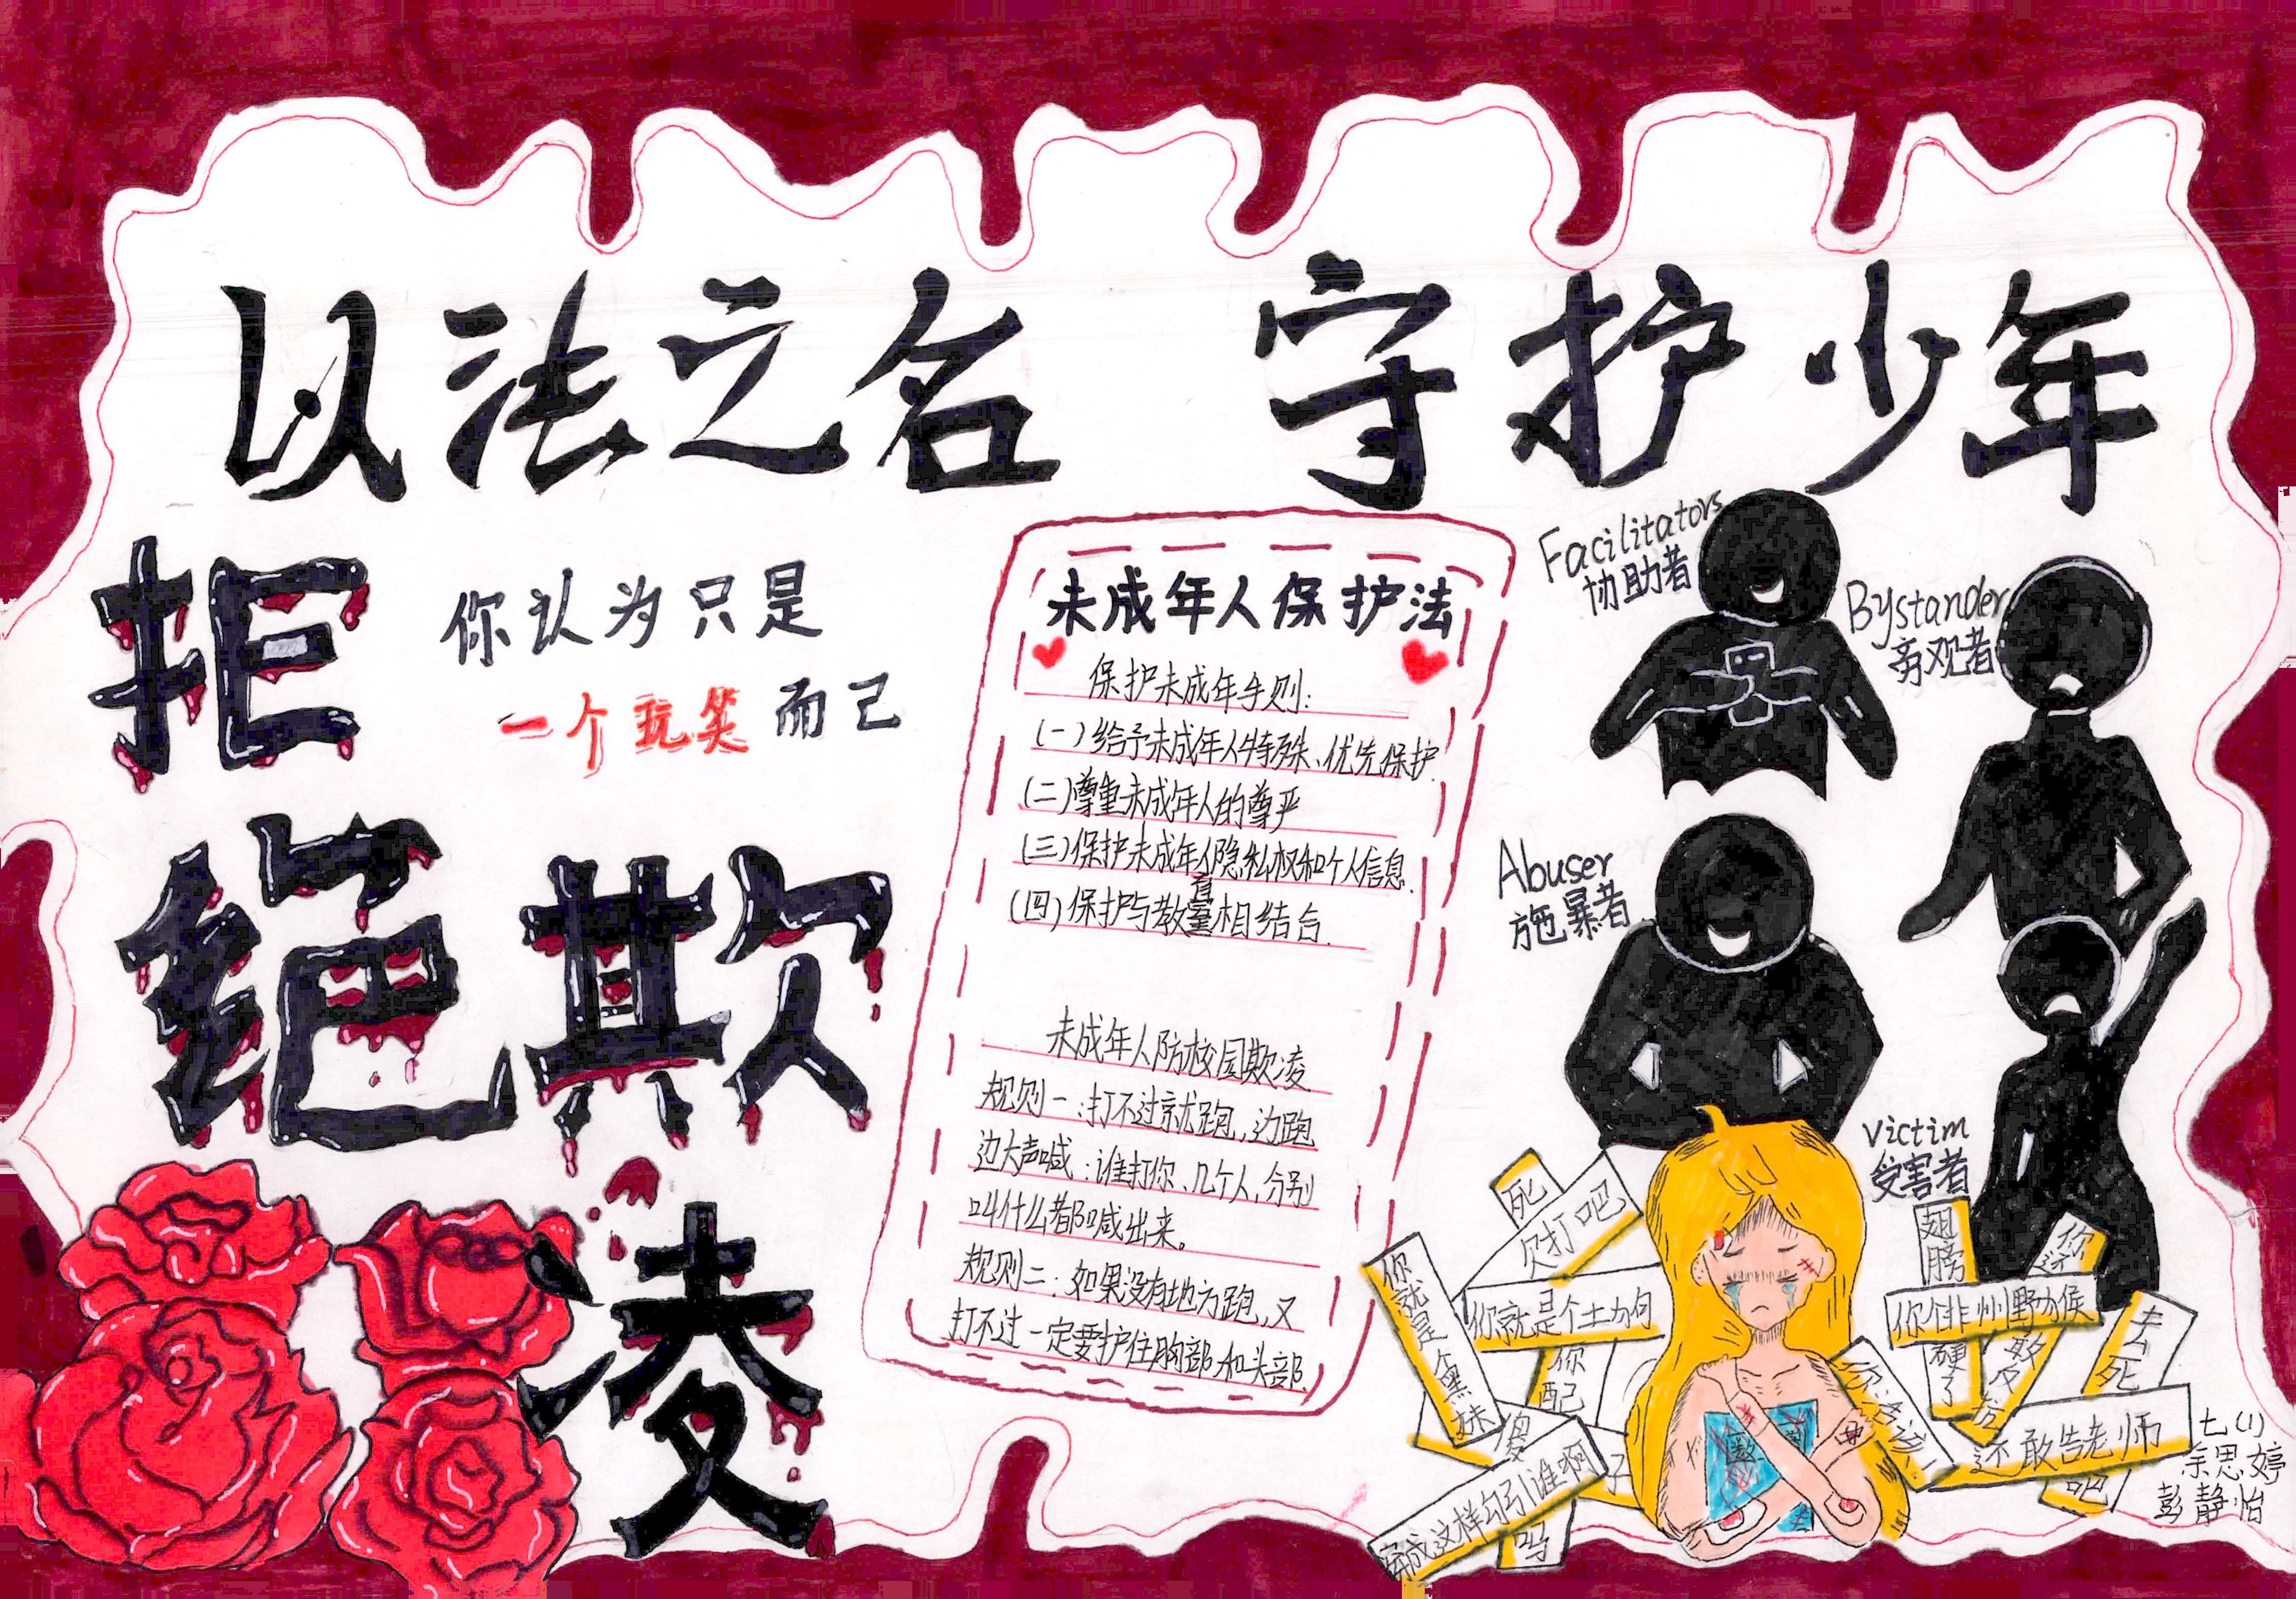 以法之名 守护少年
拒
绝 欺
凌
你认为只是
一个玩笑而己
未成年人保护法
保护未成年手则:
(一)给予未成年人特殊、优先保护.
(二)尊重未成年人的尊严
(三)保护未成年人隐私权和个人信息.
(四)保护与教育相结合.
未成年人防校园欺凌
规则一:打不过就跑,边跑
边大声喊:谁打你、几个人,分别
叫什么都喊出来。
规则二:如果没有地方跑,又
打不过一定要护住胸部和头部.
Facilitators
协助者
Bystander
旁观者
Abuser
施暴者
Victim
受害者
死
欠打吧
你就是个黑妹
你配
穿成这样勾引谁啊
吗
翅膀
硬了
你个非州野猴
去死
还敢告老师
吧
七(1)
余思婷
彭静怡